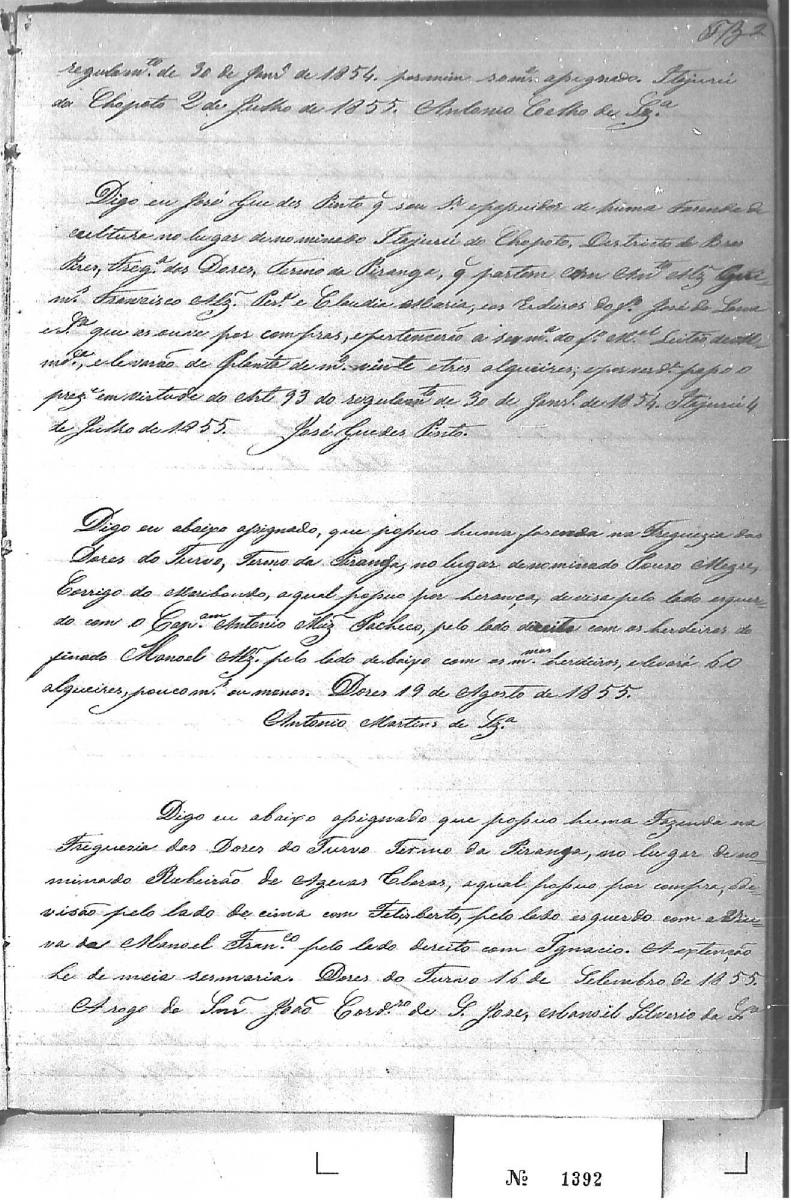 regulam.to de 30 de Janr.o de 1854. por mim som.e assignado. Itajurú
do Chopoto 2 de Julho de 1855. Antonio Coelho de Sz.a
Digo eu José Guedes Pinto q̃ sou Sr. e possuidor de huma fazenda de
cultura no lugar denominado Itajurú do Chopoto, Districto de Bras
Pires, Freg.a das Dores, Termo da Piranga, q̃ partem com Ant.o Alz
Francisco Alz. Per.a e Claudia Maria, e os Erdeiros do f.o José de Lana
e S.a que as ouve por compras, e pertencerão a sesm.a do f.o M.el Leitão de
e levarão de planta de m.o vinte e tres alqueires; e por verd.e passo o
prez.e em virtude do Art 93 do regulam.to de 30 de Janr.o de 1854. Itajurú 4
de Julho de 1855. José Guedes Pinto.
Digo eu abaixo assignado, que possuo huma fazenda na Freguezia das
Dores do Turvo, Termo da Piranga, no lugar denominado Pouso Alegre,
Corrigo do Maribondo, a qual possuo por herança, devisa pelo lado esquer-
do com o Cap.am Antonio Alz Pacheco, pelo lado direito com os herdeiros do
finado Manoel Alz. pelo lado debaixo com os m.mos herdeiros, e levará 60
alqueires, pouco m.s ou menos. Dores 19 de Agosto de 1855.
Antonio Martins de Sz.a
Digo eu abaixo assignado que possuo huma Fazenda na
Freguesia das Dores do Turvo Termo da Piranga, no lugar deno-
minado Ribeirão de Agoas Claras, a qual possuo por compra, e de
visão pelo lado de cima com Felisberto, pelo lado esquerdo com a Viu-
va de Manoel Fran.co pelo lado direito com Ignacio. A extenção
he de meia sesmaria. Dores do Turvo 16 de Setembro de 1855.
A rogo do Snr. João Cord.ro de S. Jose, Manoel Silverio da S.a
№ 1392